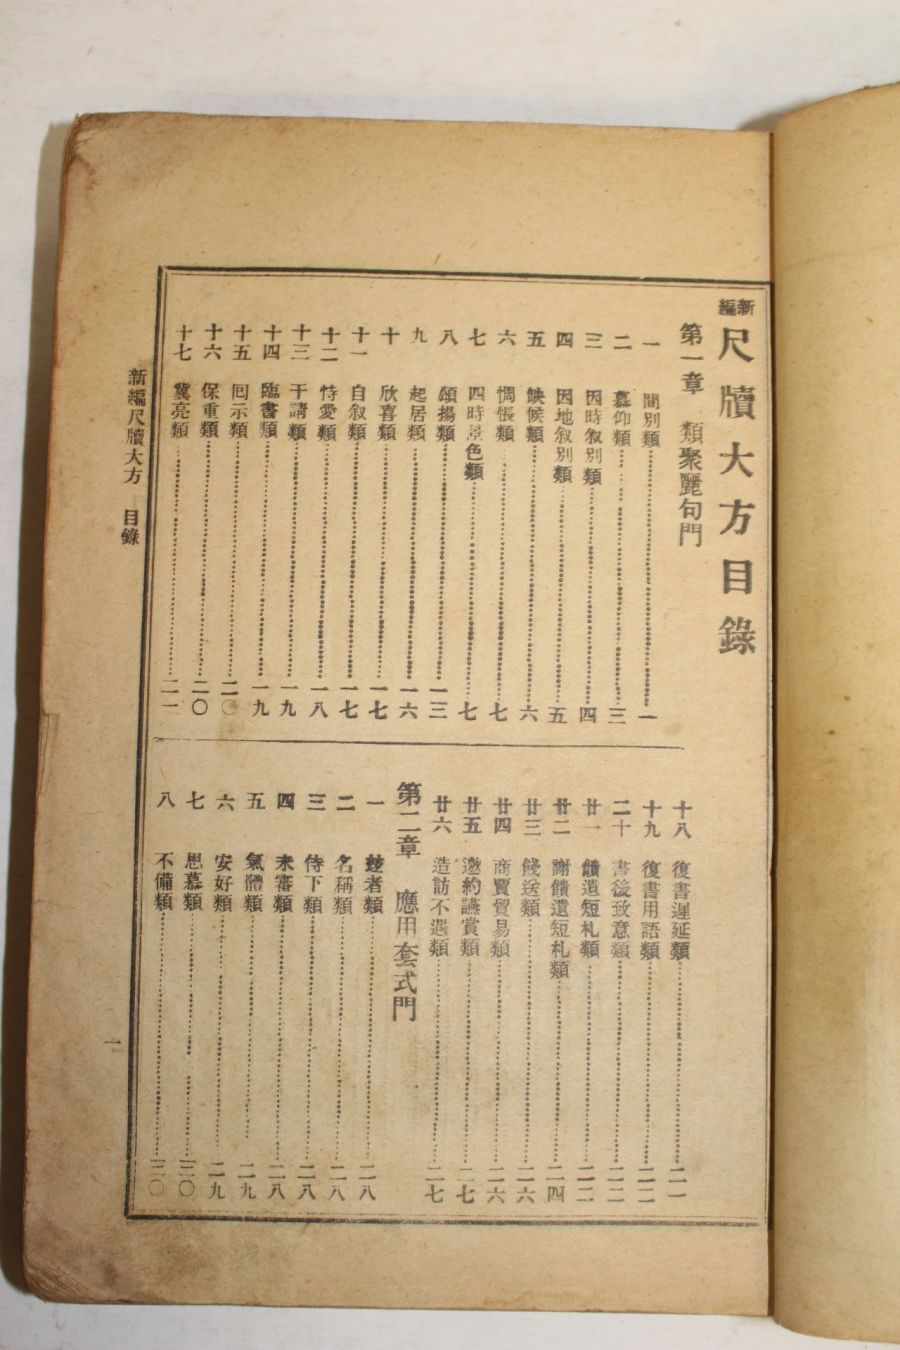 新編 尺牘大方目錄
第一章 類聚麗句門
一 間別類 一
二 慕仰類 三
三 因時敘別類 四
四 因地敘別類 五
五 缺候類 六
六 惆悵類 七
七 四時景色類 七
八 頌揚類 一三
九 起居類 一六
十 欣喜類 一七
十一 自敘類 一七
十二 恃愛類 一八
十三 干請類 一九
十四 臨書類 一九
十五 回示類 二〇
十六 保重類 二〇
十七 冀亮類 二一
十八 復書遲延類 二一
十九 復書用語類 二二
二十 書後致意類 二二
廿一 饋遺短札類 二二
廿二 謝饋遺短札類 二四
廿三 餞送類 二六
廿四 商賈貿易類 二六
廿五 邀約讌賞類 二七
廿六 造訪不遇類 二七
第二章 應用套式門
一 者類 二八
二 名稱類 二八
三 侍下類 二八
四 未審類 二八
五 氣體類 二九
六 安好類 二九
七 思慕類 三〇
八 不備類 三〇
新編尺牘大方 目錄
一